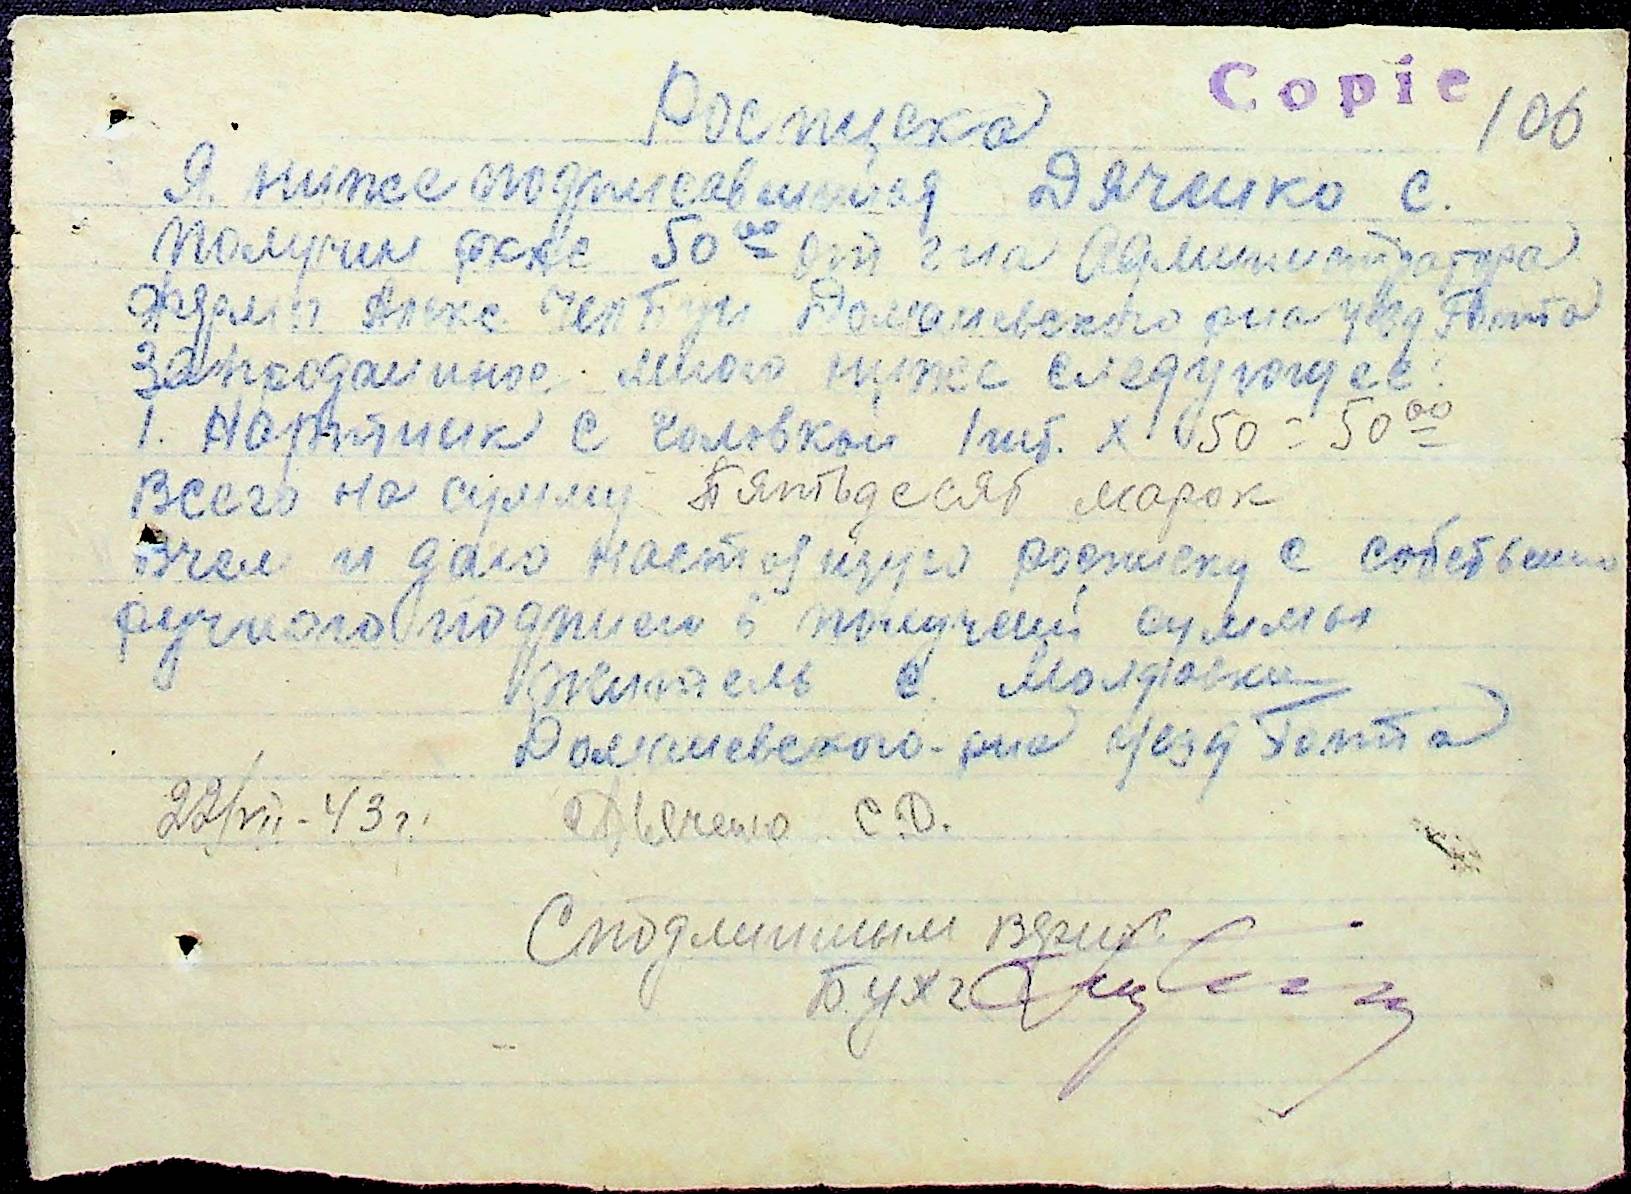 Copie
106
Роспуска
Я ниже подписавшийся Дяченко С.
Получил рккс 50 00 от г на Администратора
фермы Алекс. Доманевского рна уезд Голта
За проданное мною ниже следующее:
1. Нарытник с чоловкой 1 шт. х 50 = 50 00
Всего на сумму Пятьдесят марок
Вчем и даю настоящую росписку с собствено
ручного подписю в получений суммы
Житель с. Молдовка
Доманевского рна уезд Голта
22/VII - 43 г. Дяченко С.D.
С подлинным верно
Бухг